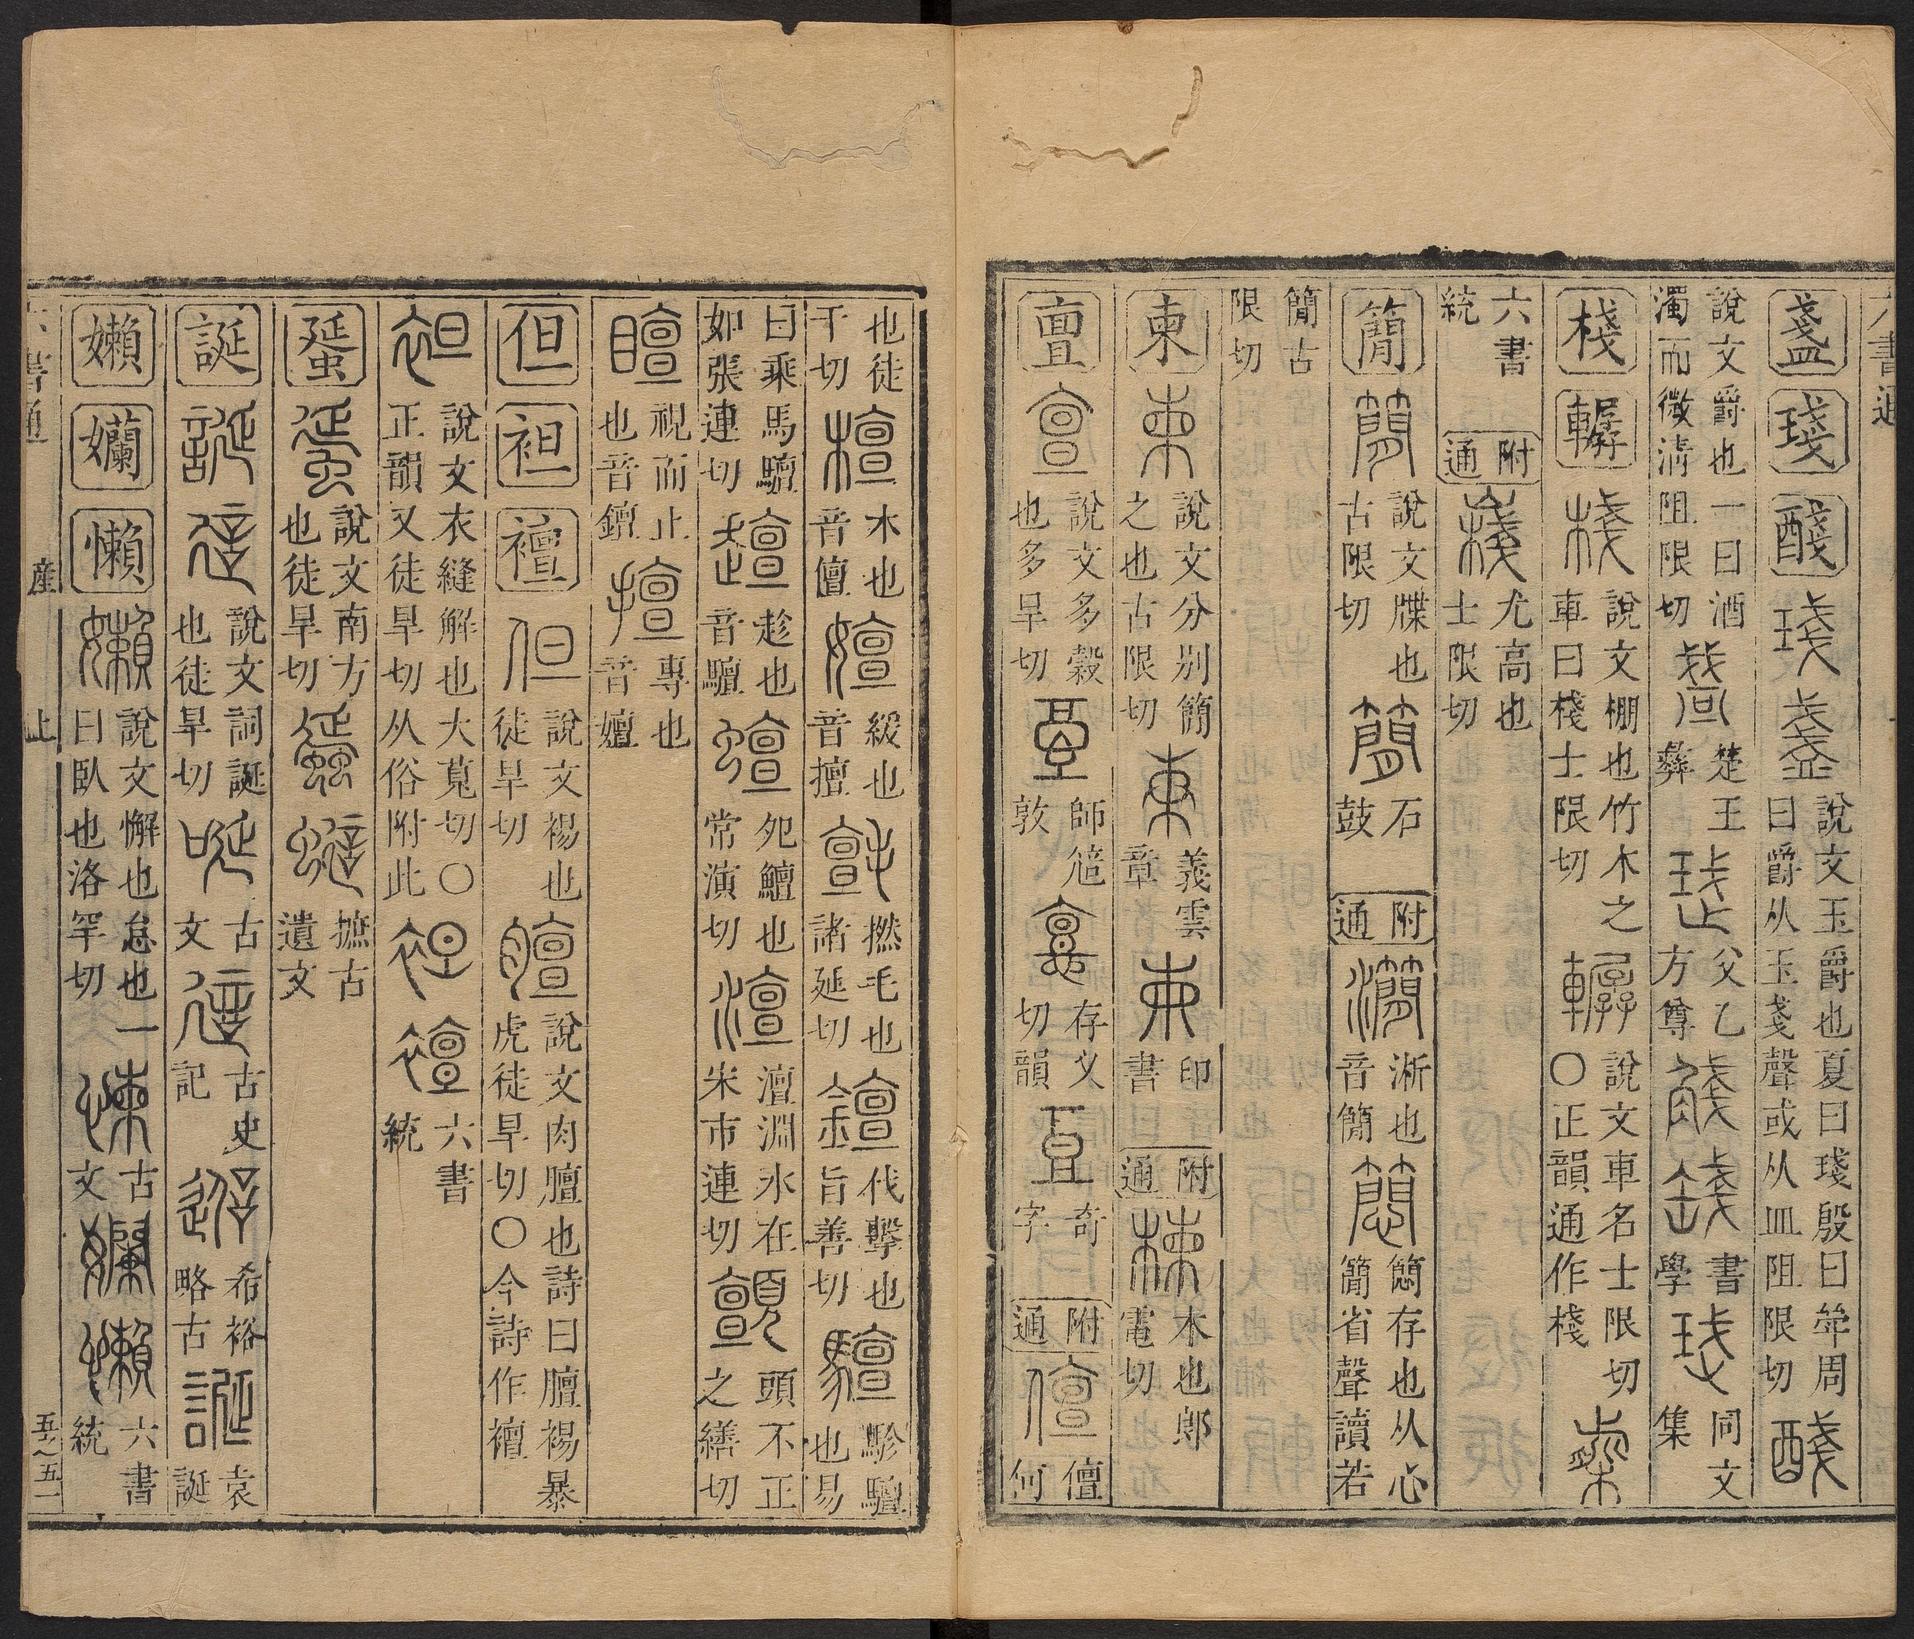 盞 琖 醆 說文玉爵也夏曰琖殷曰斚周曰爵从玉戔聲或从皿阻限切
說文爵也一曰酒濁而微清阻限切 楚王彝 父乙方尊 書學 同文集
棧 轏 說文棚也竹木之車曰棧士限切 說文車名士限切〇正韻通作棧
六書統 附通 尤高也士限切
簡 說文牒也古限切 石鼓 附通 淅也音簡 𥳑存也从心簡省聲讀若
簡古限切
柬 說文分別簡之也古限切 義雲章 印書 附通 木也郎電切
亶 說文多穀也多旱切 師𩛥敦 存乂切韻 奇字 附通 儃何
也徒干切 木也音儃 緩也音擅 撚毛也諸延切 伐擊也旨善切 駗驙也易
曰乘馬驙如張連切 趁也音驙 夗鱣也常演切 澶淵水在宋市連切 頭不正之繕切
視而止也音鐔 專也音嬗
但 袒 襢 說文裼也徒旱切 說文肉膻也詩曰膻裼暴虎徒旱切〇今詩作襢
說文衣縫解也大莧切〇正韻又徒旱切从俗附此 六書統
蜑 說文南方也徒旱切 摭古遺文
誕 說文詞誕也徒旱切 古文 古史記 希裕略古 袁誕
嬾 孄 懶 說文懈也怠也一曰臥也洛罕切 古文 六書統
六書通 產 上 五之五一